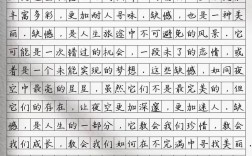 丰富多彩,更加耐人寻味,缺憾,也是一种美
丽,缺憾,是人生旅途中不可避免的风景,它
可能是一次错过的机会,一段未了的恋情,或
者是一个未能实现的梦想,这些缺憾,如同夜
空中最亮的星星,虽然它们不是最完美的,但
它们的存在,让夜空更加深邃,更加迷人,缺
憾,是人生的一部分,它教会我们珍惜,教会
我们成长,教会我们如何在不完满中寻找美丽